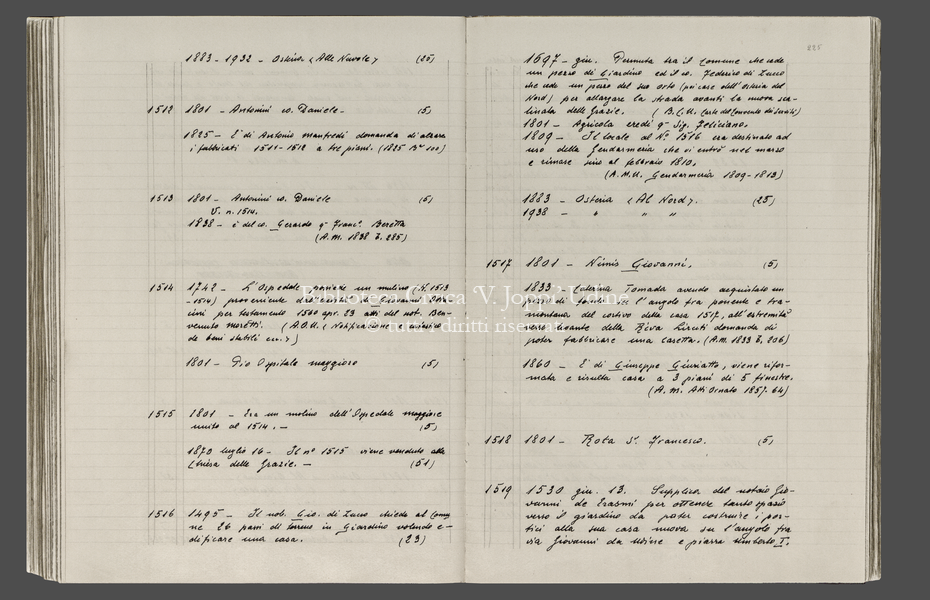 1883 - 1932 - Osteria "Alle Nuvole" (25)
1512 1801 - Antonini co. Daniele - (5)
1825 - E' di Antonio Manfredi domanda di alzare
i fabbricati 1511-1512 a tre piani. (1825
1513 1801 - Antonini co. Daniele (5)
V. n. 1514.
1838 - è del co. Gerardo q.m Franc.o Beretta
(A.M. 1838 285)
1514 1742 - L'Ospedale possiede un mulino (N. 1513
-1514) proveniente da
per testamento 1560 apr. 23 atti del not. Ben-
venuto Moretti. (A.O.U. (Notificazione
de beni stabili ecc.)
1801 - Pio Ospitale maggiore (5)
1515 1801 - Era un molino dell'Ospedale maggiore
unito al 1514. - (5)
1870 luglio 16 - Il n° 1515 viene venduto alla
Chiesa delle Grazie. - (51)
1516 1495 - Il nob. Gio. di Zucco chiede al Comu
ne 26 passi di terreno in Giardino volendo e-
dificare una casa. (23)
225
1697 - giu. Permuta tra il Comune che cede
un pezzo di Giardino ed il co. Federico di Zucco
che cede un pezzo del suo orto (vicino dell'Osteria del
Nord) per allargare la strada avanti la nuova sca-
linata delle Grazie. (B.C.U. Carte del Convento dei Serviti)
1801 - Agricola eredi q.m Sig. Feliciano.
1809 - Il locale al N° 1516 era destinato ad
uso della Gendarmeria che vi entrò nel marzo
e rimase sino al febbraio 1810.
(A.M.U. Gendarmeria 1809-1813)
1883 - Osteria "Al Nord". (25)
1938 - " " "
1517 1801 - Nimis Giovanni. (5)
1833 - Tomada avendo acquistato un
pezzo di fondo verso l'angolo fra ponente e tra-
montana del cortivo della casa 1517, all'estremità
mancante della Riva Liruti domanda di
poter fabbricare una casetta. (A.M. 1833 206)
1860 - E' di Giuseppe Giuriatto, viene rifor-
mata e risulta casa a 3 piani di 5 finestre.
(A.M. Atti Ornato 1857. 64)
1518 1801 - Rota S.r Francesco. (5)
1519 1530 giu. 13. Supplica del notaio Gio-
vanni de Erasmi per ottenere tanto spazio
verso il giardino da poter costruire i por-
tici alla sua casa nuova su l'angolo fra
via Giovanni da Udine e piazza Umberto I.
Biblioteca Civica 'V. Joppi' Udine
© tutti i diritti riservati